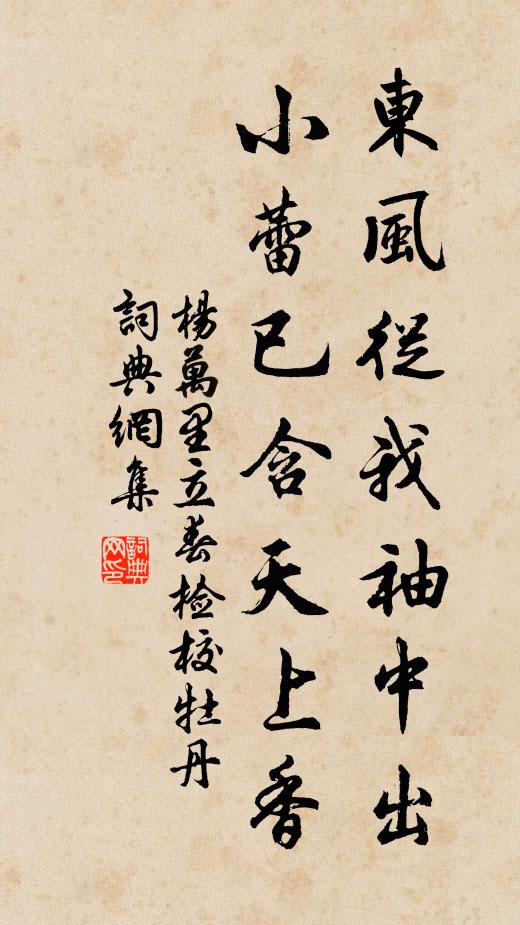 東風從我袖中出
小蕾已含天上香
楊萬里立春检校牡丹
詞典網集
詞典
网印